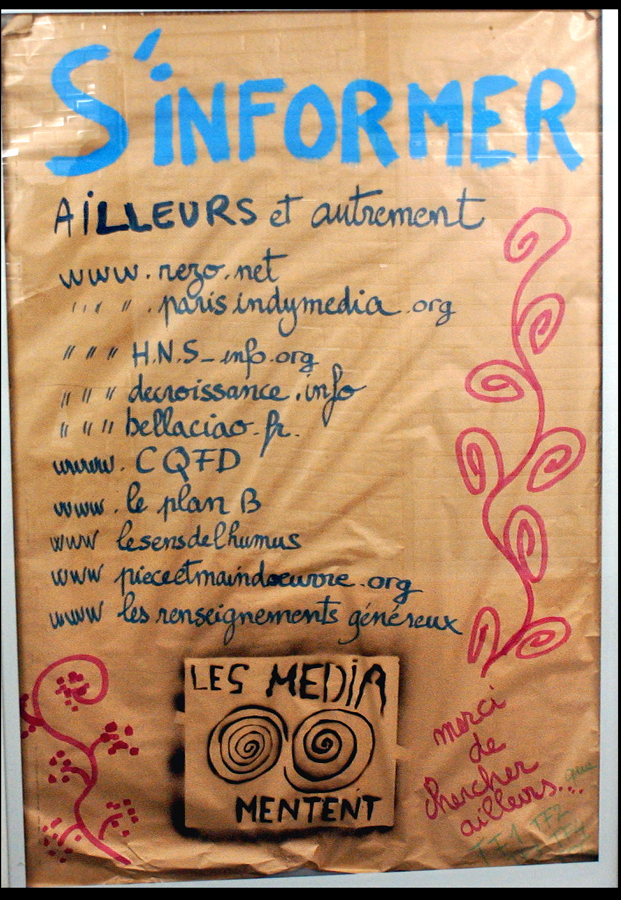 S'INFORMER
AiLLEURS et autrement
www.rezo.net
" " " .paris.indymedia.org
" " " H.N.S_info.org
" " " decroissance.info
" " " bellaciao.fr.
www. CQFD
www. le plan B
www lesensdelhumus
www pieceetmaindoeuvre.org
www les renseignements généreux
LES MEDiA
MENTENT
merci
de
chercher
ailleurs...
que
TF1 TF2